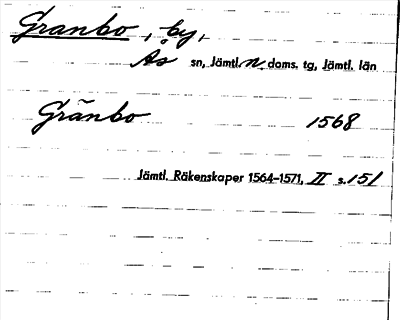 Granbo, by,
Ås sn, Jämtl. n. doms. tg, Jämtl. län
Gränbo 1568
Jämtl. Räkenskaper 1564-1571, II s. 151